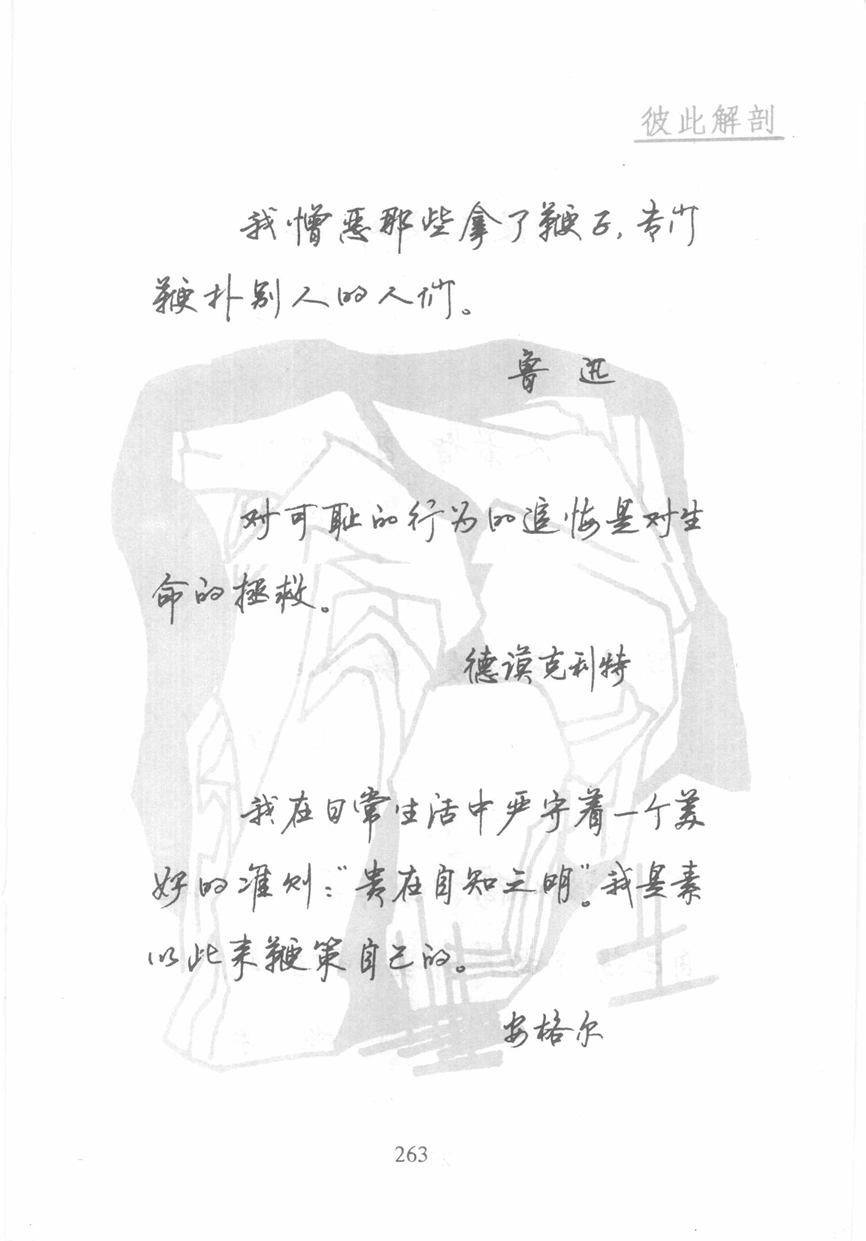 彼此解剖
我憎恶那些拿了鞭子,专门
鞭扑别人的人们。
鲁迅
对可耻的行为的追悔是对生
命的拯救。
德谟克利特
我在日常生活中严守着一个美
好的准则:“贵在自知之明”。我是素
以此来鞭策自己的。
安格尔
263